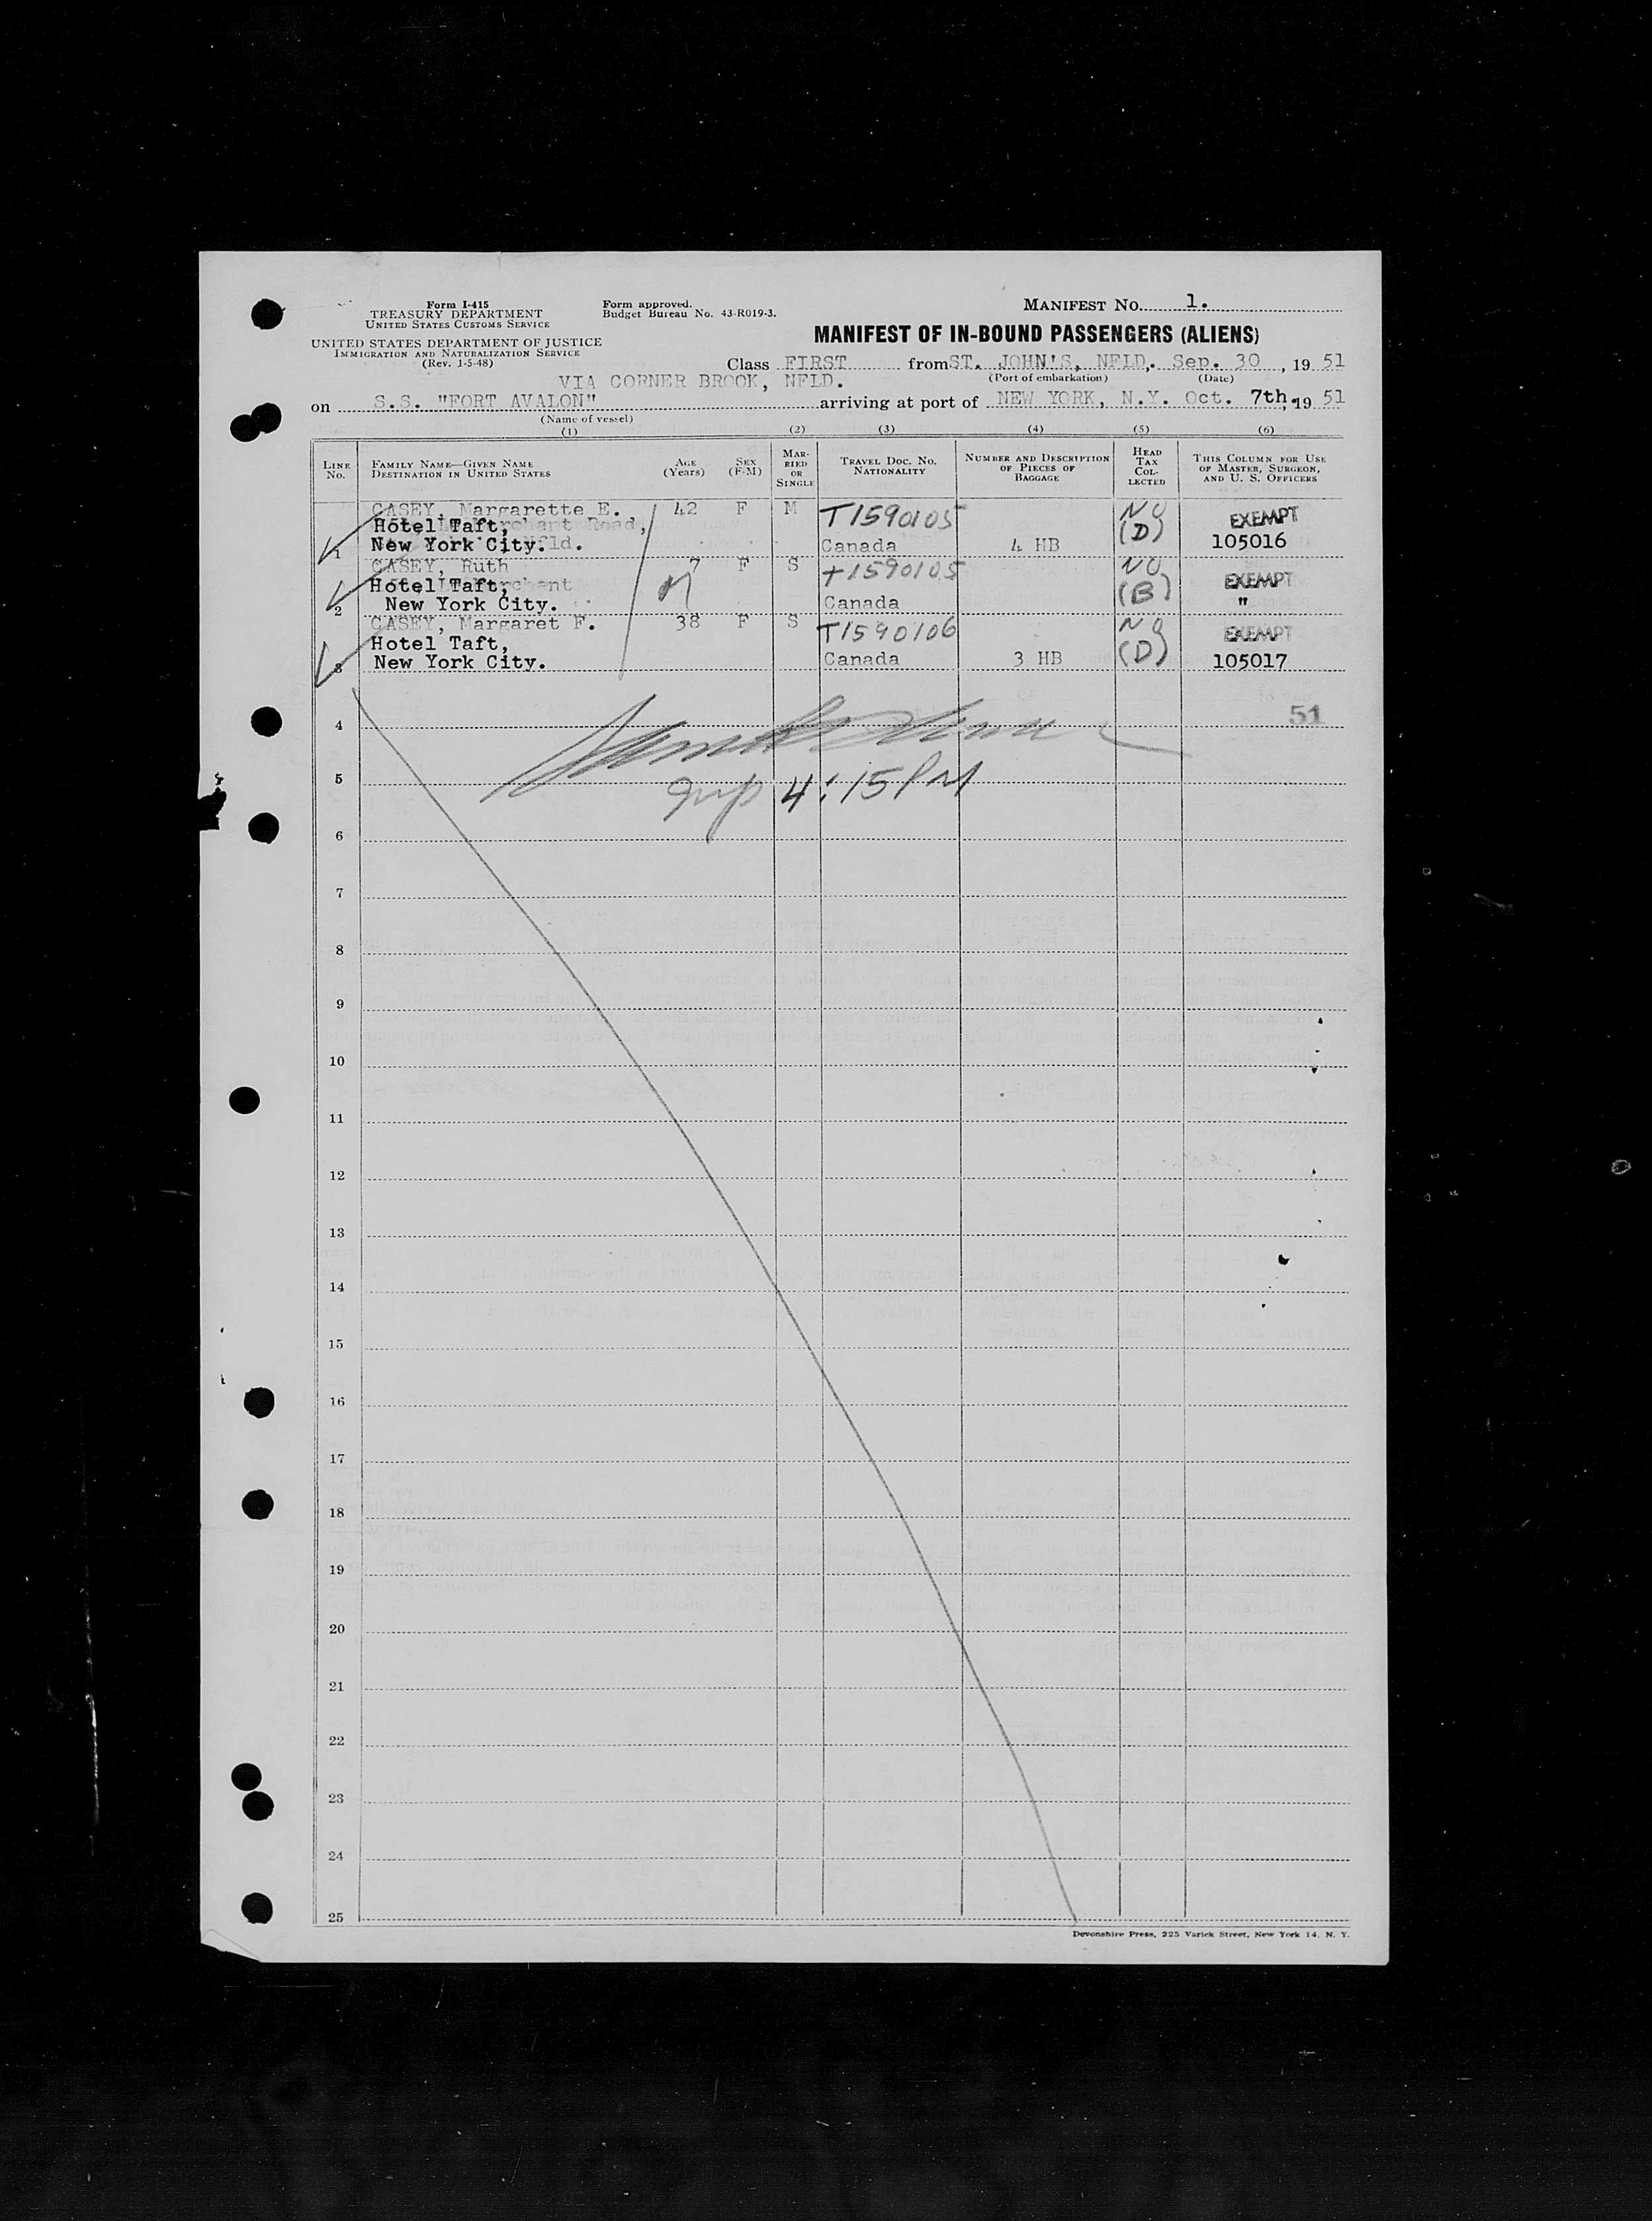 Form I-415
TREASURY DEPARTMENT
UNITED STATES CUSTOMS SERVICE
UNITED STATES DEPARTMENT OF JUSTICE
IMMIGRATION AND NATURALIZATION SERVICE
(Rev. 1-5-48)
Form approved.
Budget Bureau No. 43-R019-3.
MANIFEST NO. 1.
MANIFEST OF IN-BOUND PASSENGERS (ALIENS)
Class FIRST from ST. JOHN'S, NFLD. Sep. 30, 1951
(Port of embarkation) (Date)
VIA CORNER BROOK, NFLD.
on S.S. "FORT AVALON" arriving at port of NEW YORK, N.Y. Oct. 7th, 1951
(Name of vessel)
(1) (2) (3) (4) (5) (6)
LINE NO. FAMILY NAME—GIVEN NAME DESTINATION IN UNITED STATES AGE (Years) SEX (F-M) MARRIED OR SINGLE TRAVEL DOC. NO. NATIONALITY NUMBER AND DESCRIPTION OF PIECES OF BAGGAGE HEAD TAX COLLECTED THIS COLUMN FOR USE OF MASTER, SURGEON, AND U. S. OFFICERS
CASEY, Margarette E. 42 F M T1590105 NO EXEMPT
Hotel Taft, Road, (D)
1 New York City. Nfld. Canada 4 HB 105016
CASEY, Ruth 7 F S T1590105 NO EXEMPT
Hotel Taft, (B)
2 New York City. Canada "
CASEY, Margaret F. 38 F S T1590106 NO EXEMPT
Hotel Taft, (D)
3 New York City. Canada 3 HB 105017
51
4
4:15 PM
5
6
7
8
9
10
11
12
13
14
15
16
17
18
19
20
21
22
23
24
25
Devonshire Press, 225 Varick Street, New York 14, N. Y.